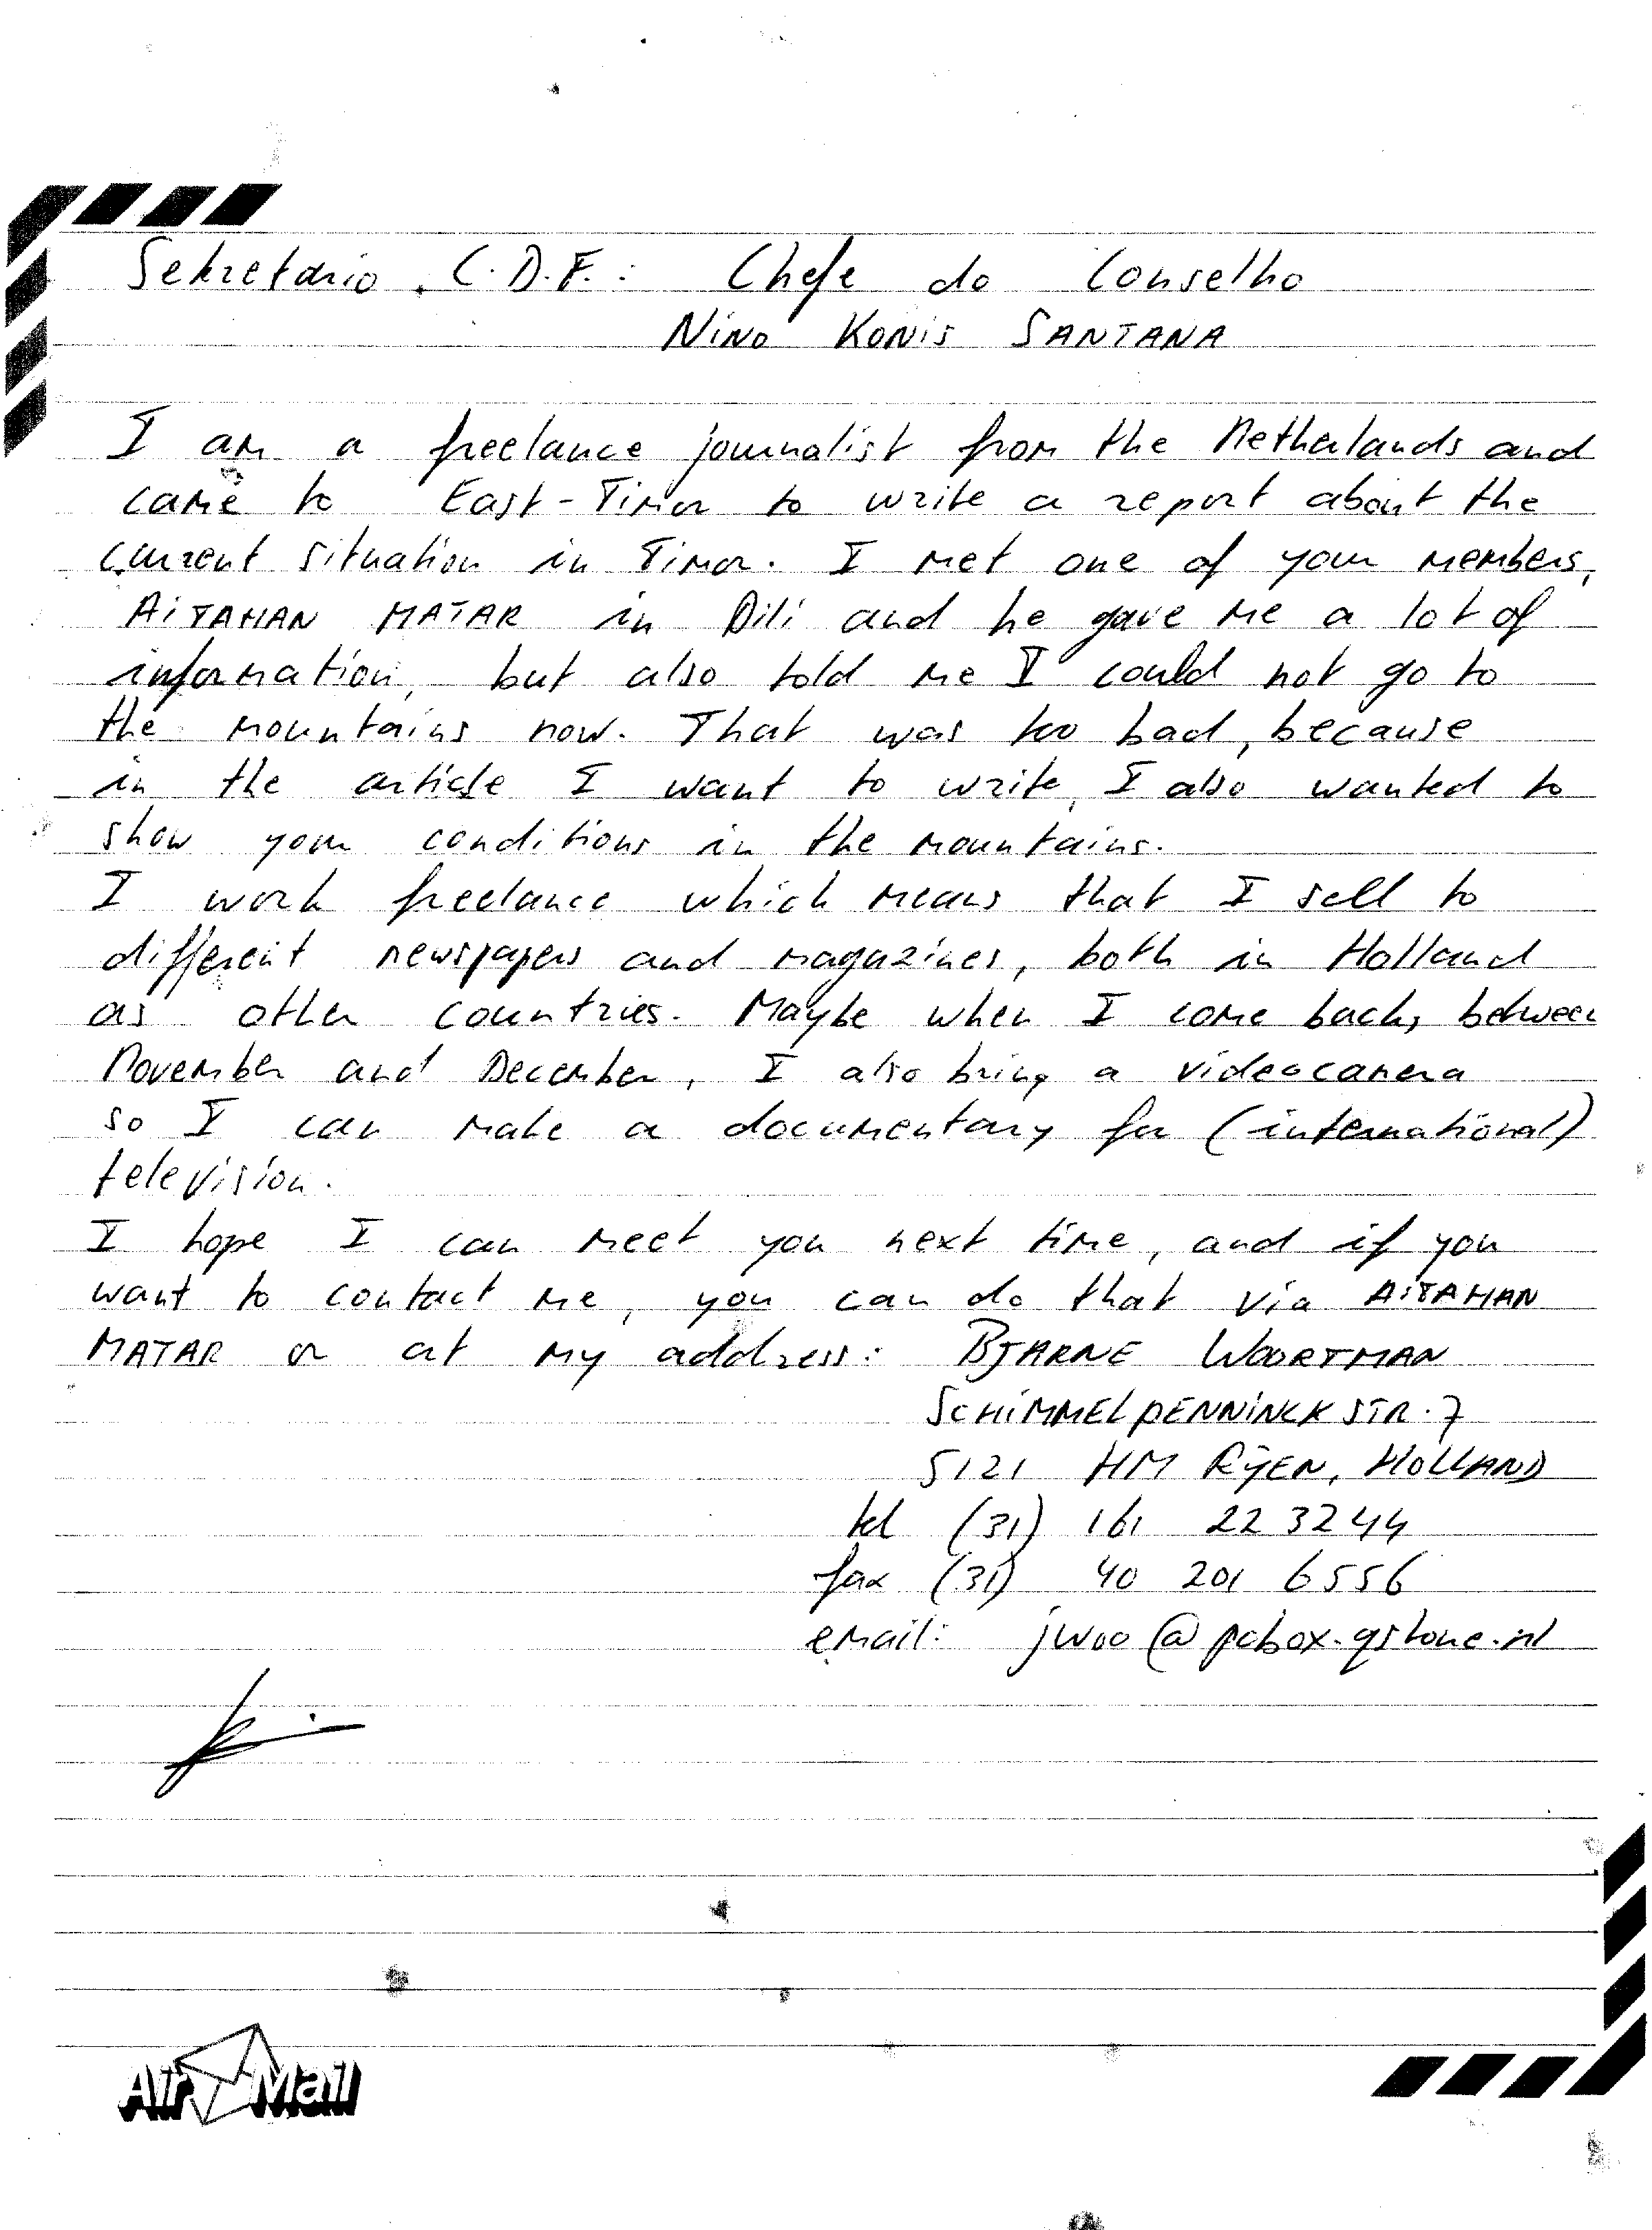 Sekretario C.D.F.: Chefe do Conselho
NiNO KONiS SANTANA
I am a freelance journalist from the Netherlands and
came to East-Timor to write a report about the
current situation in Timor. I met one of your members,
AiTAHAN MATAR in Dili and he gave me a lot of
information, but also told me I could not go to
the mountains now. That was too bad, because
in the article I want to write, I also wanted to
show your conditions in the mountains.
I work freelance which means that I sell to
different newspapers and magazines, both in Holland
as other countries. Maybe when I come back, between
November and December, I also bring a videocamera
so I can make a documentary for (international)
television.
I hope I can meet you next time, and if you
want to contact me, you can do that via AiTAHAN
MATAR or at my address: BJARNE WOORTMAN
SCHiMMELpENNiNCKSTR. 7
5121 HM RIJEN, HOLLAND
tel (31) 161 22 32 44
fax (31) 40 201 6556
email: jwoo@pobox.qstone.nl
Air Mail